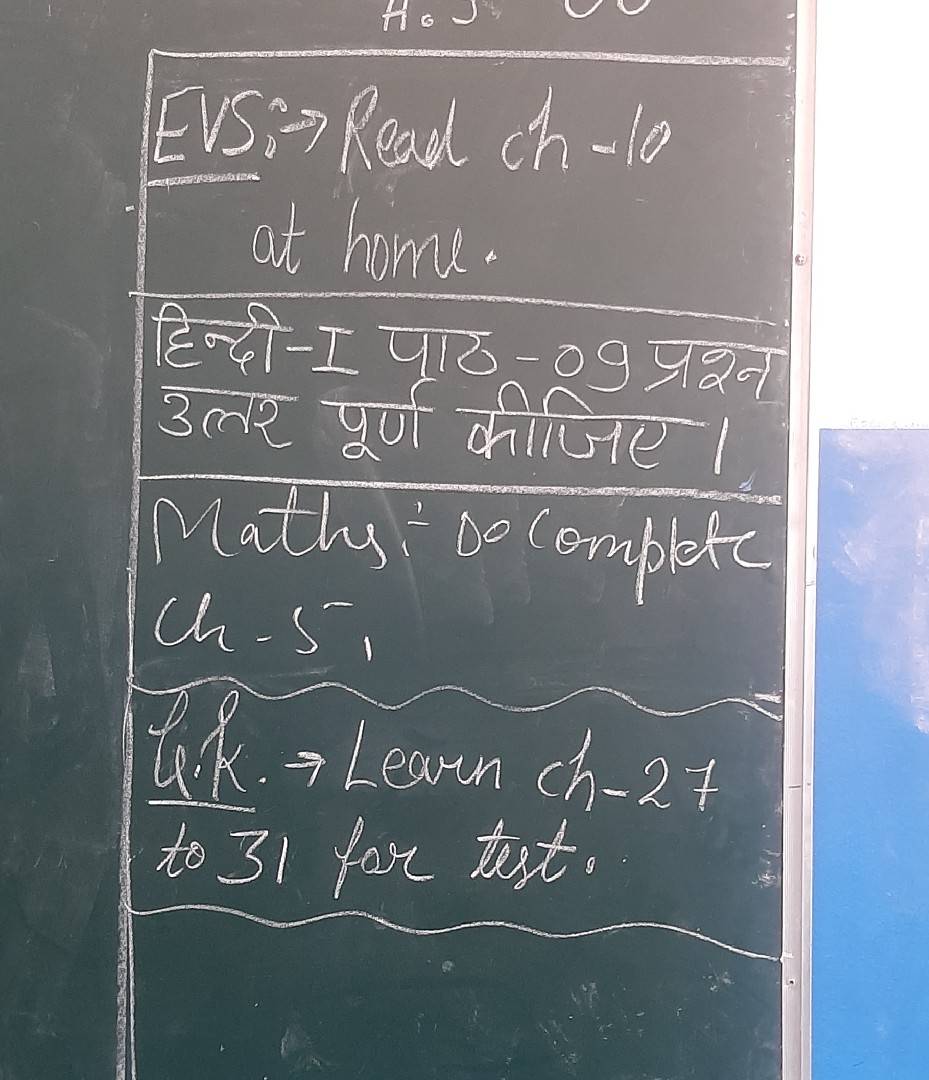 EVS:→ Read ch-10
at home.
हिन्दी-I पाठ-09 प्रश्न
उत्तर पूर्ण कीजिए ।
Maths÷ Do Complete
Ch-5,
G.K. → Learn ch-27
to 31 for test.